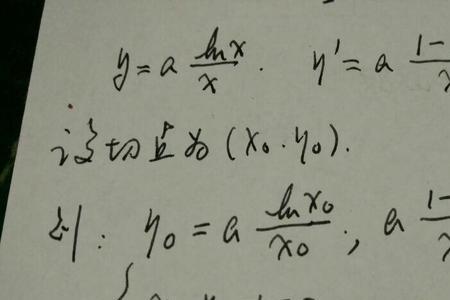 y = a \frac{\ln x}{x} . y' = a \frac{1-}{x}
设切点为 (x₀ . y₀).
则: y₀ = a \frac{\ln x₀}{x₀} , a \frac{1-}{x}